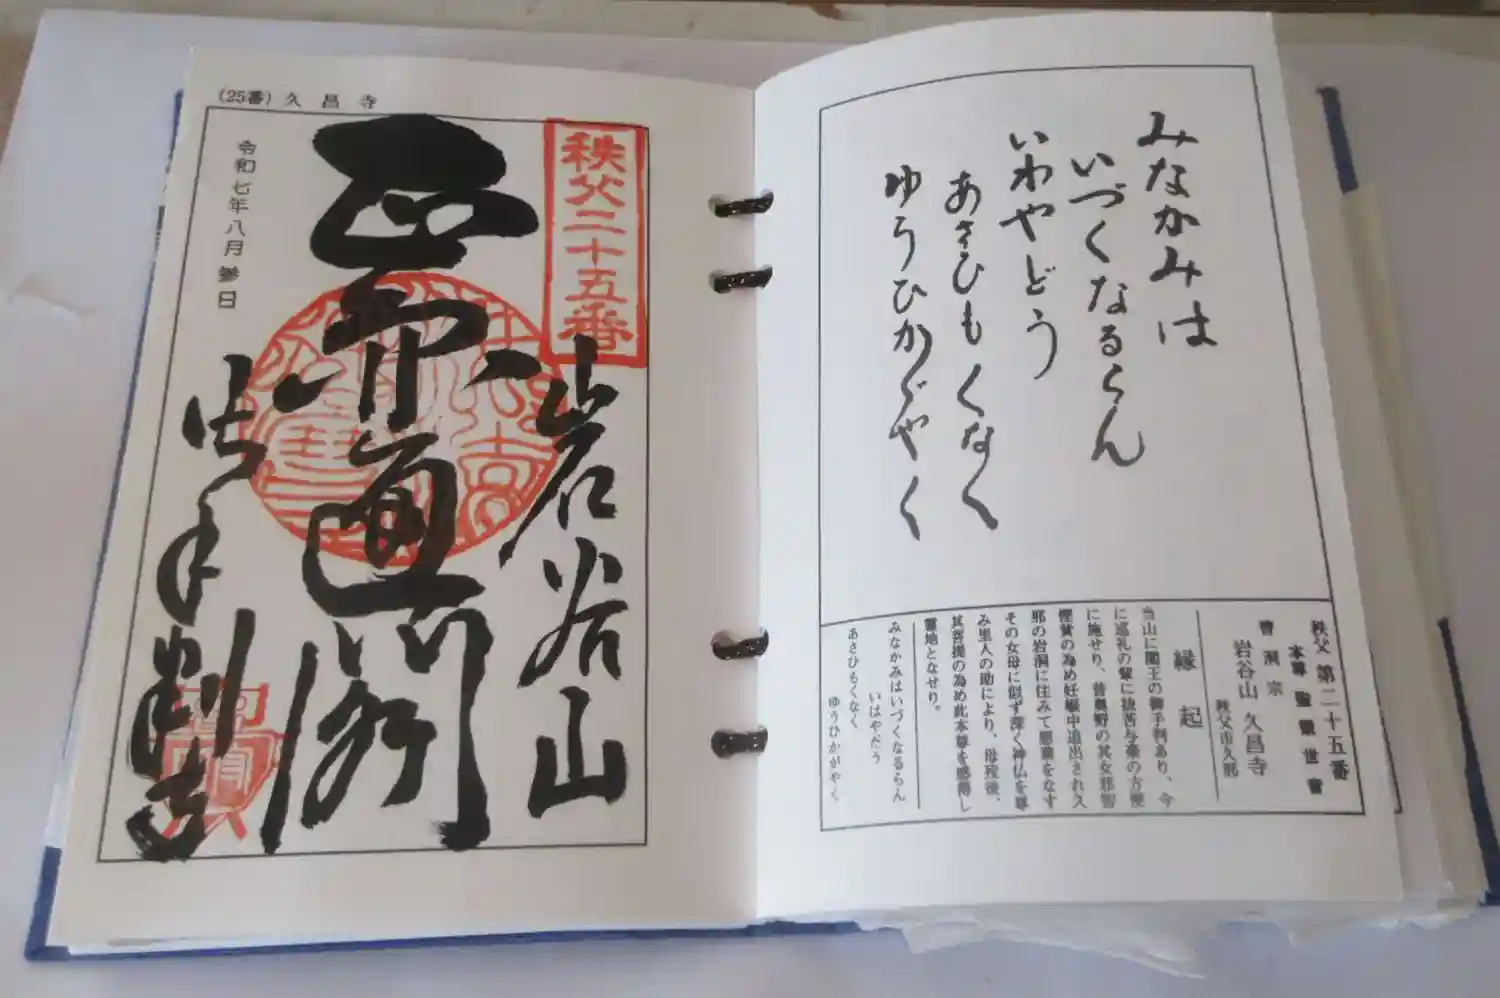 (25番) 久昌寺
秩父二十五番
岩谷山
圓
令和七年八月参日
御手判寺
みなかみは
いづくなるらん
いわやどう
あさひもくなく
ゆうひかゞやく
秩父 第二十五番
本尊 聖観世音
曹洞宗
岩谷山 久昌寺
秩父市久那
縁起
当山に閻王の御手判あり、今
に巡礼の輩に抜苦与楽の方便
に施せり、昔奥野の其女邪智
慳貪の為め妊娠中追出され久
那の岩洞に住みて悪業をなす
その女母に似ず深く神仏を尊
み里人の助により、母歿後、
其菩提の為め此本尊を感得し
霊地となせり。
みなかみはいづくなるらん
いはやだう
あさひもくなく
ゆうひかがやく